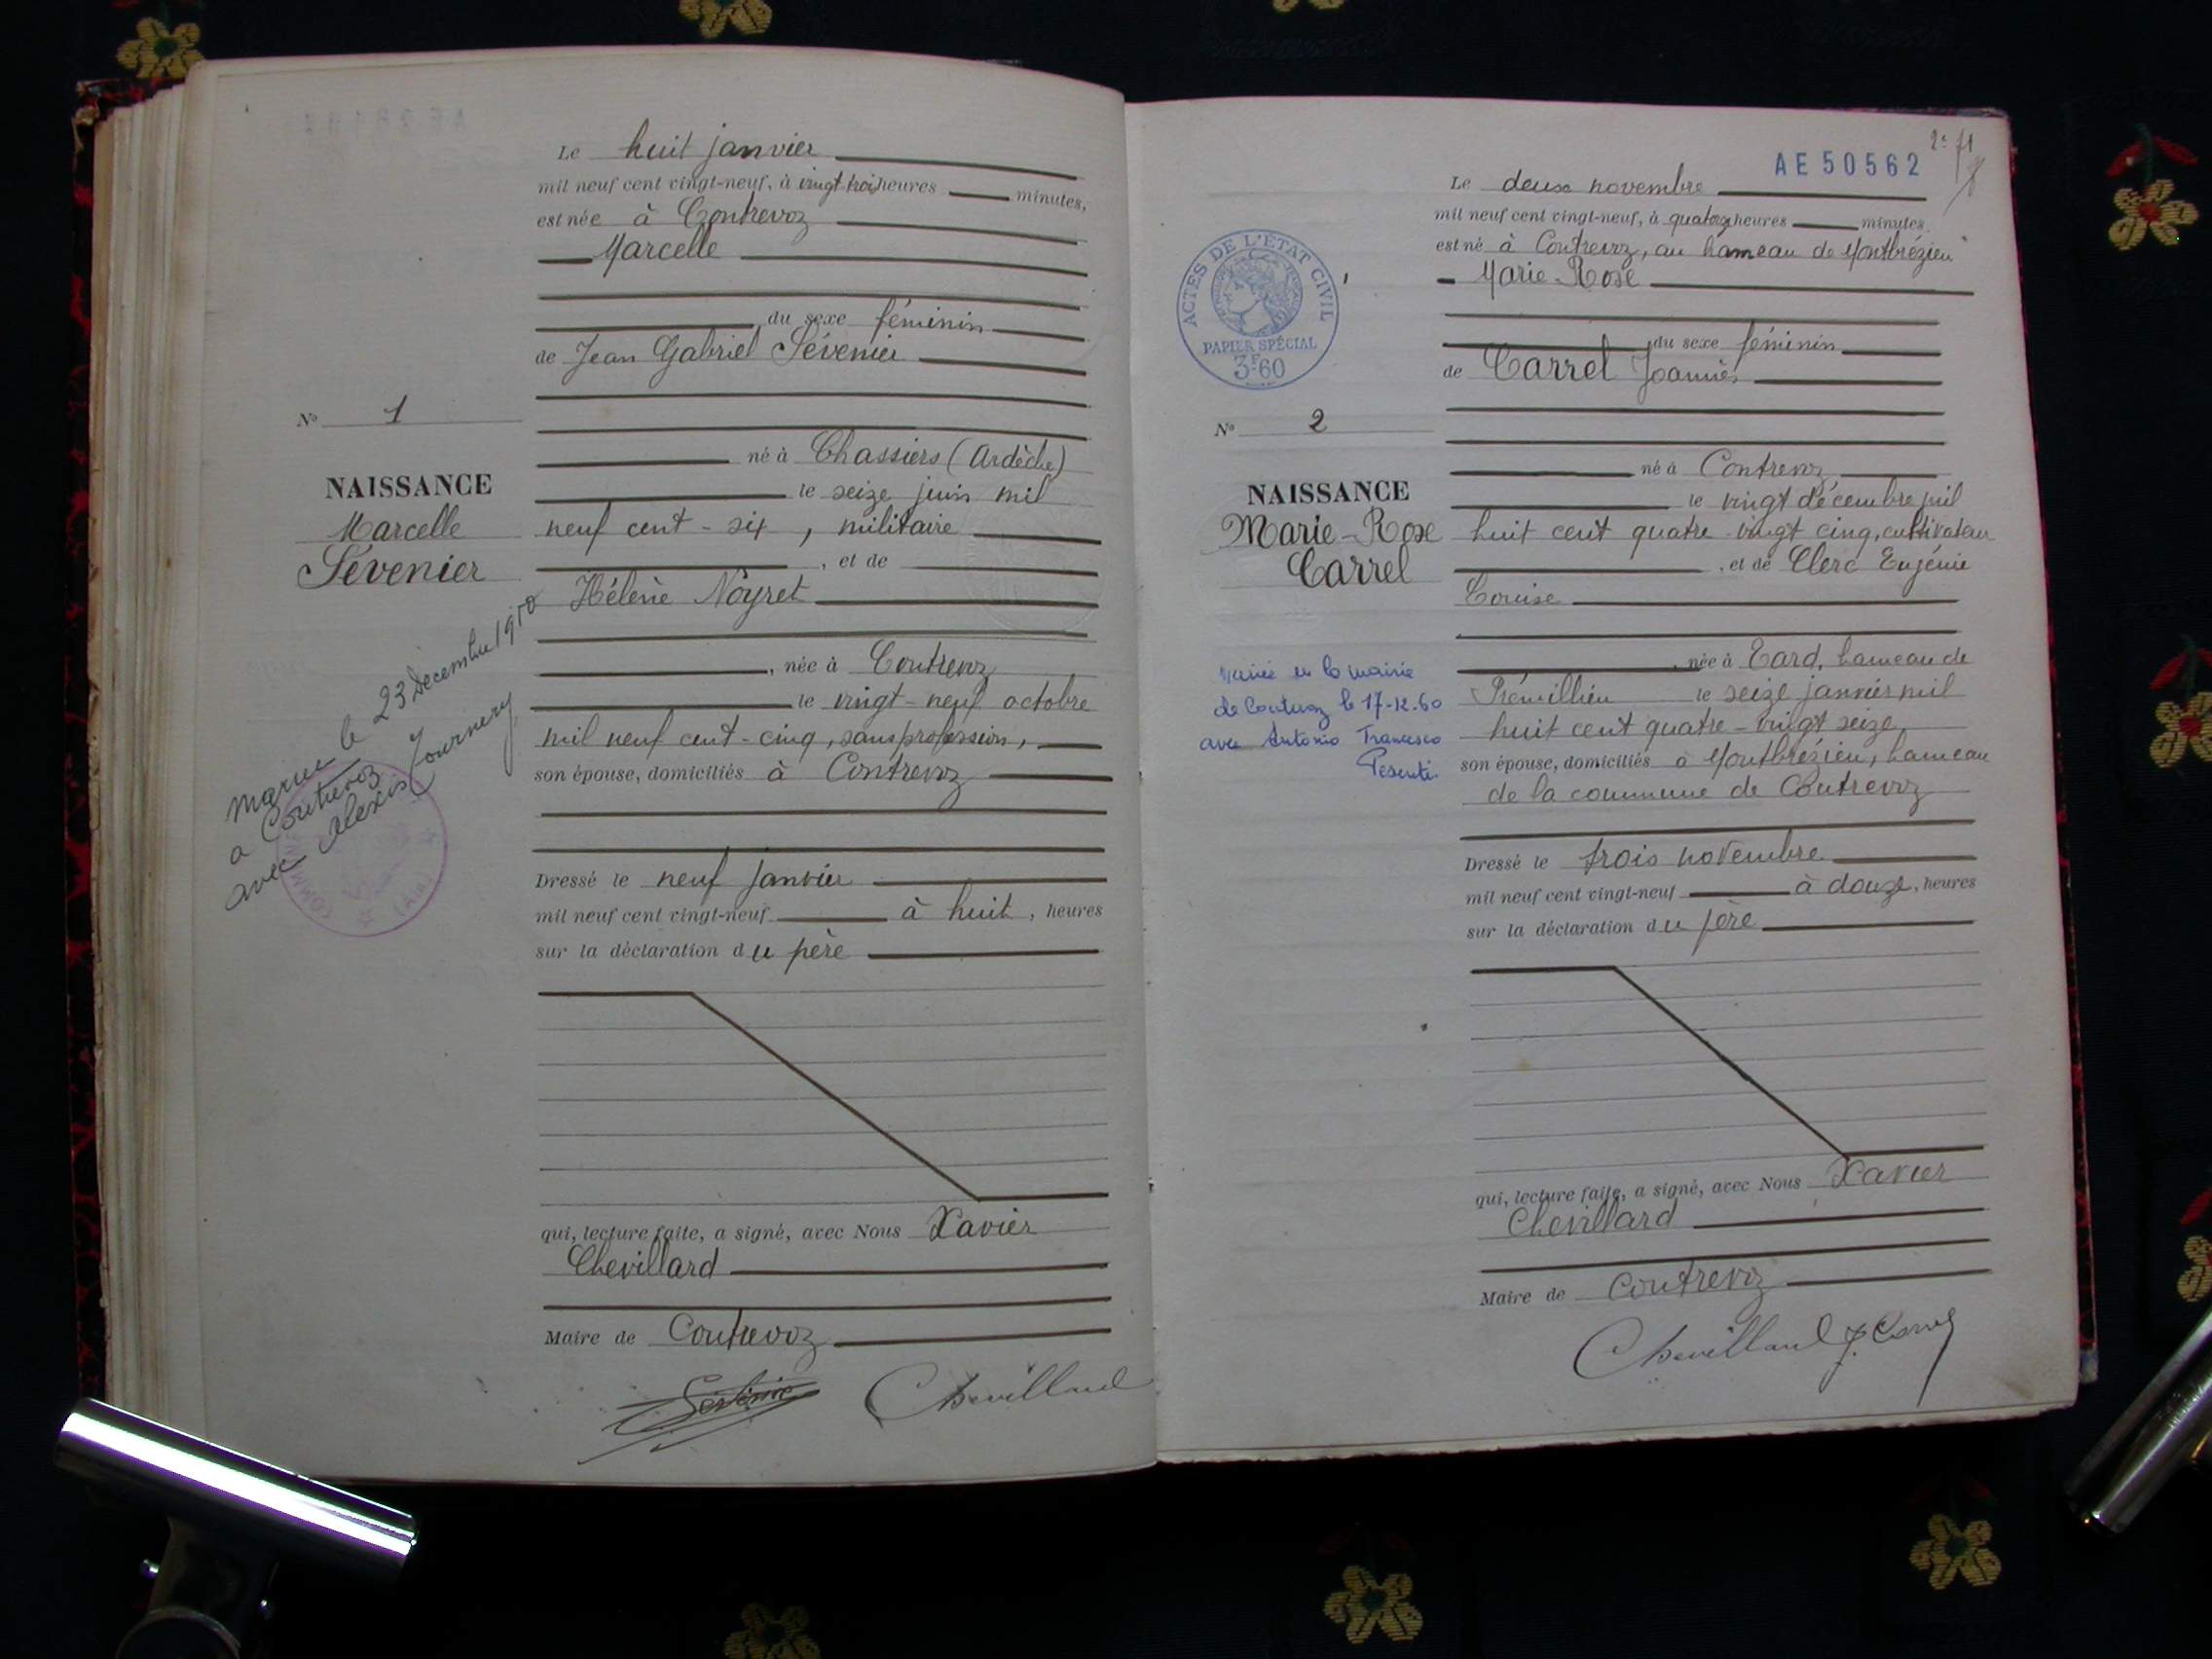 Le huit janvier
mil neuf cent vingt-neuf, à vingt trois heures minutes,
est née à Contrevoz
Marcelle
du sexe féminin
de Jean Gabriel Sévenier
N° 1
né à Chassiers (Ardèche)
le seize juin mil
NAISSANCE
Marcelle
Sévenier
neuf cent-six, militaire
, et de
Hélène Noyret
, née à Contrevoz
le vingt-neuf octobre
mil neuf cent-cinq, sans profession,
son épouse, domiciliés à Contrevoz
Mariée le 23 Décembre 1950
a Contrevoz
avec Alexis Journery
COMMUNE
(Ain)
Dressé le neuf janvier
mil neuf cent vingt-neuf à huit, heures
sur la déclaration du père
qui, lecture faite, a signé, avec Nous Xavier
Chevillard
Maire de Contrevoz
Chevillard
AE 50562
Le deux novembre
mil neuf cent vingt-neuf, à quatorze heures minutes
est né à Contrevoz, au hameau de Montbrézieu
Marie-Rose
du sexe féminin
de Carrel Joannès
ACTES DE L'ÉTAT CIVIL
PAPIER SPÉCIAL
3F60
N° 2
né à Contrevoz
le vingt décembre mil
NAISSANCE
Marie-Rose
Carrel
huit cent quatre-vingt cinq, cultivateur
, et de Clerc Eugénie
Louise
, née à hameau de
Prémillieu le seize janvier mil
huit cent quatre-vingt seize
son épouse, domiciliés à Montbrézieu, hameau
de la commune de Contrevoz
Mariée en la mairie
de Contrevoz le 17-12.60
avec Antonio Francesco
Pesenti
Dressé le trois novembre
mil neuf cent vingt-neuf à douze, heures
sur la déclaration du père
qui, lecture faite, a signé, avec Nous Xavier
Chevillard
Maire de Contrevoz
Chevillard J. Carrel